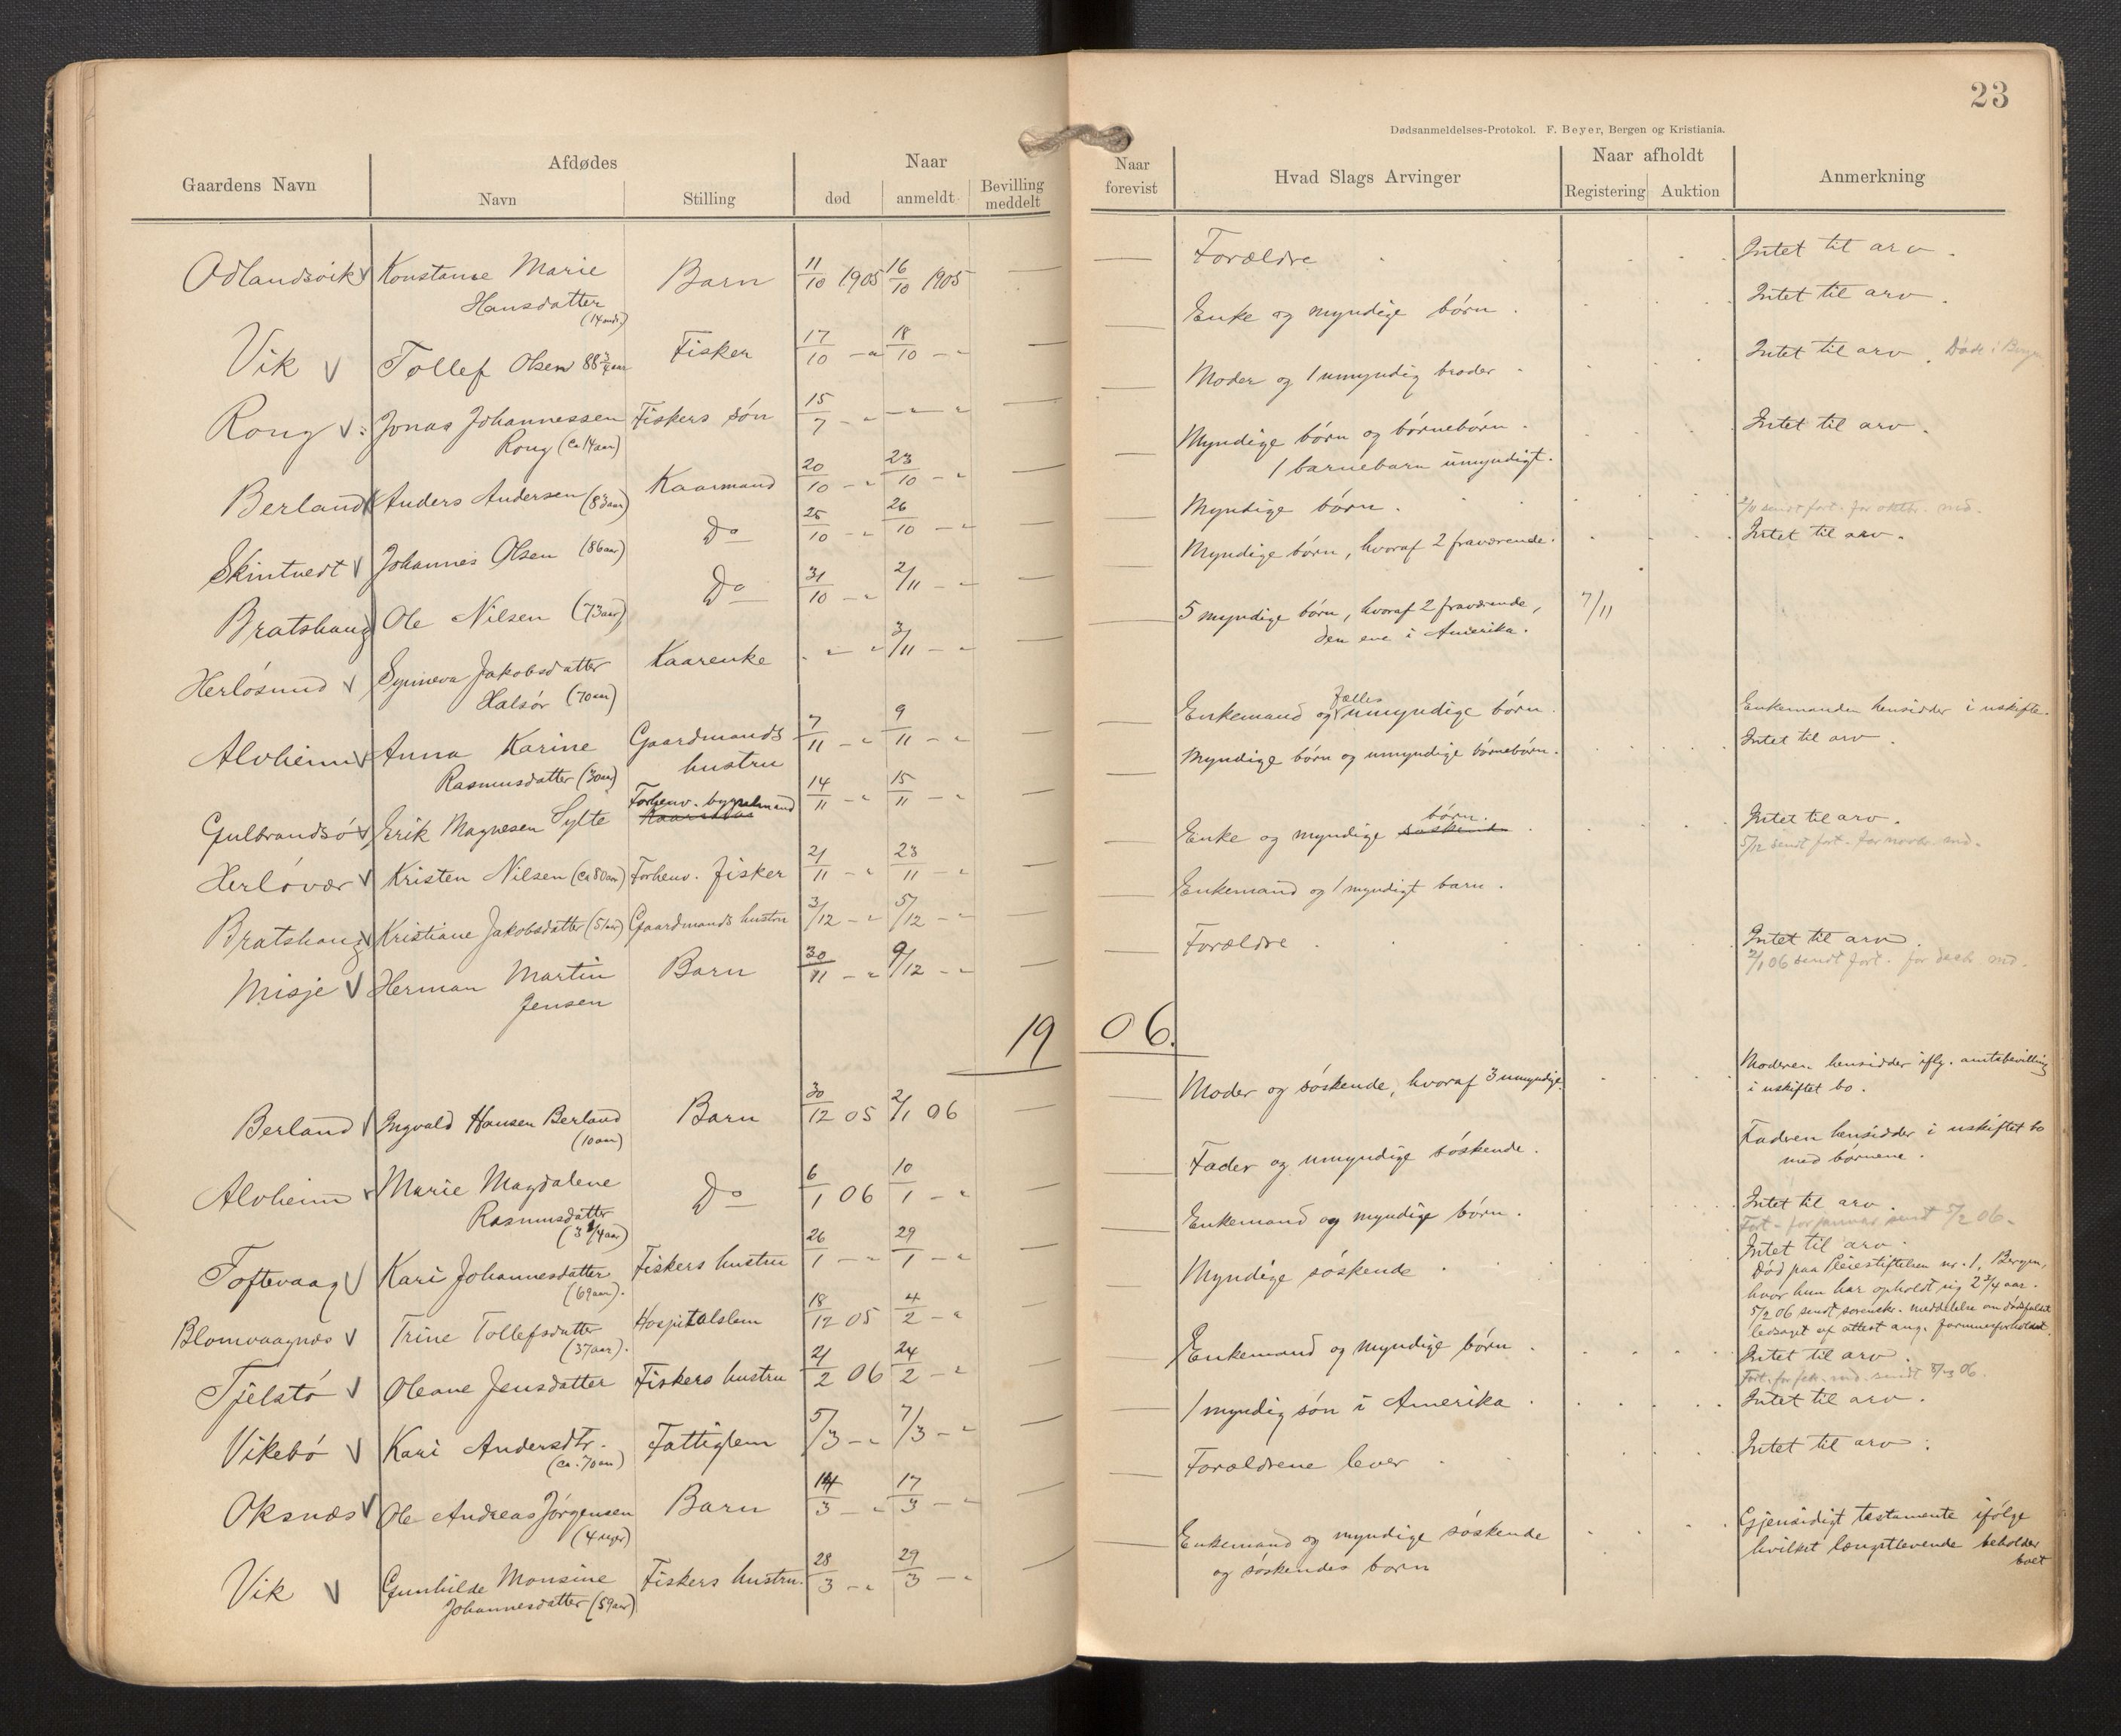 23
Dødsanmeldelses-Protokol. F. Beyer, Bergen og Kristiania.
Gaardens Navn
Afdødes
Navn
Stilling
Naar
død
anmeldt
Bevilling meddelt
Naar forevist
Hvad Slags Arvinger
Naar afholdt
Registering
Auktion
Anmerkning
Odlandsvik Konstanse Marie Barn 11/10 1905 16/10 1905 — — Forældre Intet til arv.
Hansdatter
(14 mdr)
Vik Tollef Olsen 88 3/4 aar Fisker 17/10 - " 18/10 - " — — Enke og myndige børn. Intet til arv.
Rong Jonas Johannessen Fiskers søn 15/7 - " - " - " — — Moder og 1 umyndig broder. Intet til arv. Døde i Bergen
Rong (ca 14 aar)
Berland Anders Andersen (83 aar) Kaarmand 20/10 - " 23/10 - " — — Myndige børn og børnebørn. Intet til arv.
1 barnebarn umyndigt.
Skintvedt Johannes Olsen (86 aar) Do 25/10 - " 26/10 - " — — Myndige børn.
2/11 sendt fort. for oktbr. md.
Bratshaug Ole Nilsen (73 aar) Do 31/10 - " 2/11 - " — — Myndige børn, hvoraf 2 fraværende. Intet til arv.
Herløsund Synneva Jakobsdatter Kaarenke " " 3/11 - " — — 5 myndige børn, hvoraf 2 fraværende, 7/11
Halsør (70 aar) den ene i Amerika.
Alvheim Anna Karine Gaardmands 7/11 - " 9/11 - " — — Enkemand og fælles umyndige børn. Enkemanden hensidder i uskifte.
Rasmusdatter (30 aar) hustru
Gulbrandsø Erik Magnesen Sylte Forhenv. bygselmand 14/11 - " 15/11 - " — — Myndige børn og umyndige børnebørn. Intet til arv.
Herløvær Kristen Nilsen (ca 80 aar) Forhenv. fisker 21/11 - " 23/11 - " — — Enke og myndige søskende børn. Intet til arv.
5/12 sendt fort. for novbr. md.
Bratshaug Kristiane Jakobsdatter (51 aar) Gaardmands hustru 3/12 - " 5/12 - " — — Enkemand og 1 myndigt barn.
Misje Herman Martin Barn 30/11 - " 9/12 - " — — Forældre Intet til arv.
Jensen
2/1 06 sendt fort. for decb. md.
1906.
Berland Ingvald Hansen Berland Barn 30/12 05 2/1 06 — — Moder og søskende, hvoraf 3 umyndige. Moderen hensidder iflg. amtsbevilling
(10 aar) i uskiftet bo.
Alvheim Marie Magdalene Do 6/1 06 10/1 - " — — Fader og umyndige søskende. Fadren hensidder i uskiftet bo
Rasmusdatter med børnene.
(3 1/4 aar)
Toftevaag Kari Johannesdatter Fiskers hustru 26/1 - " 29/1 - " — — Enkemand og myndige børn. Intet til arv.
(69 aar).
Fort. for januar sendt 5/2 06.
Blomvaagnæs Trine Tollefsdatter Hospitalslem 18/12 05 4/2 - " — — Myndige søskende. Intet til arv.
(37 aar).
Død paa Pleiestiftelsen nr. 1, Bergen,
hvor hun har opholdt sig 2 3/4 aar.
5/2 06 sendt sorenskr. meddelelse om dødsfaldet
ledsaget af attest ang. formuesforholdet.
Tjelstø Oleane Jensdatter Fiskers hustru 21/2 06 24/2 - " — — Enkemand og myndige børn. Intet til arv.
Fort. for feb. md. sendt 5/3 06.
Vikebø Kari Andersdtr. Fattiglem 5/3 - " 7/3 - " — — 1 myndig søn i Amerika. Intet til arv.
(ca. 70 aar)
Oksnæs Ole Andreas Jørgensen Barn 14/3 - " 17/3 - " — — Forældrene lever. Intet til arv.
(4 uger)
Vik Gunhilde Monsine Fiskers hustru. 28/3 - " 29/3 - " — — Enkemand og myndige søskende Gjensidigt testamente ifølge
Johannesdatter (59 aar) og søskendes barn hvilket længstlevende beholder
boet